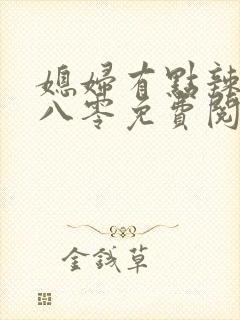 媳婦有點辣
八零免費閱
金錢草